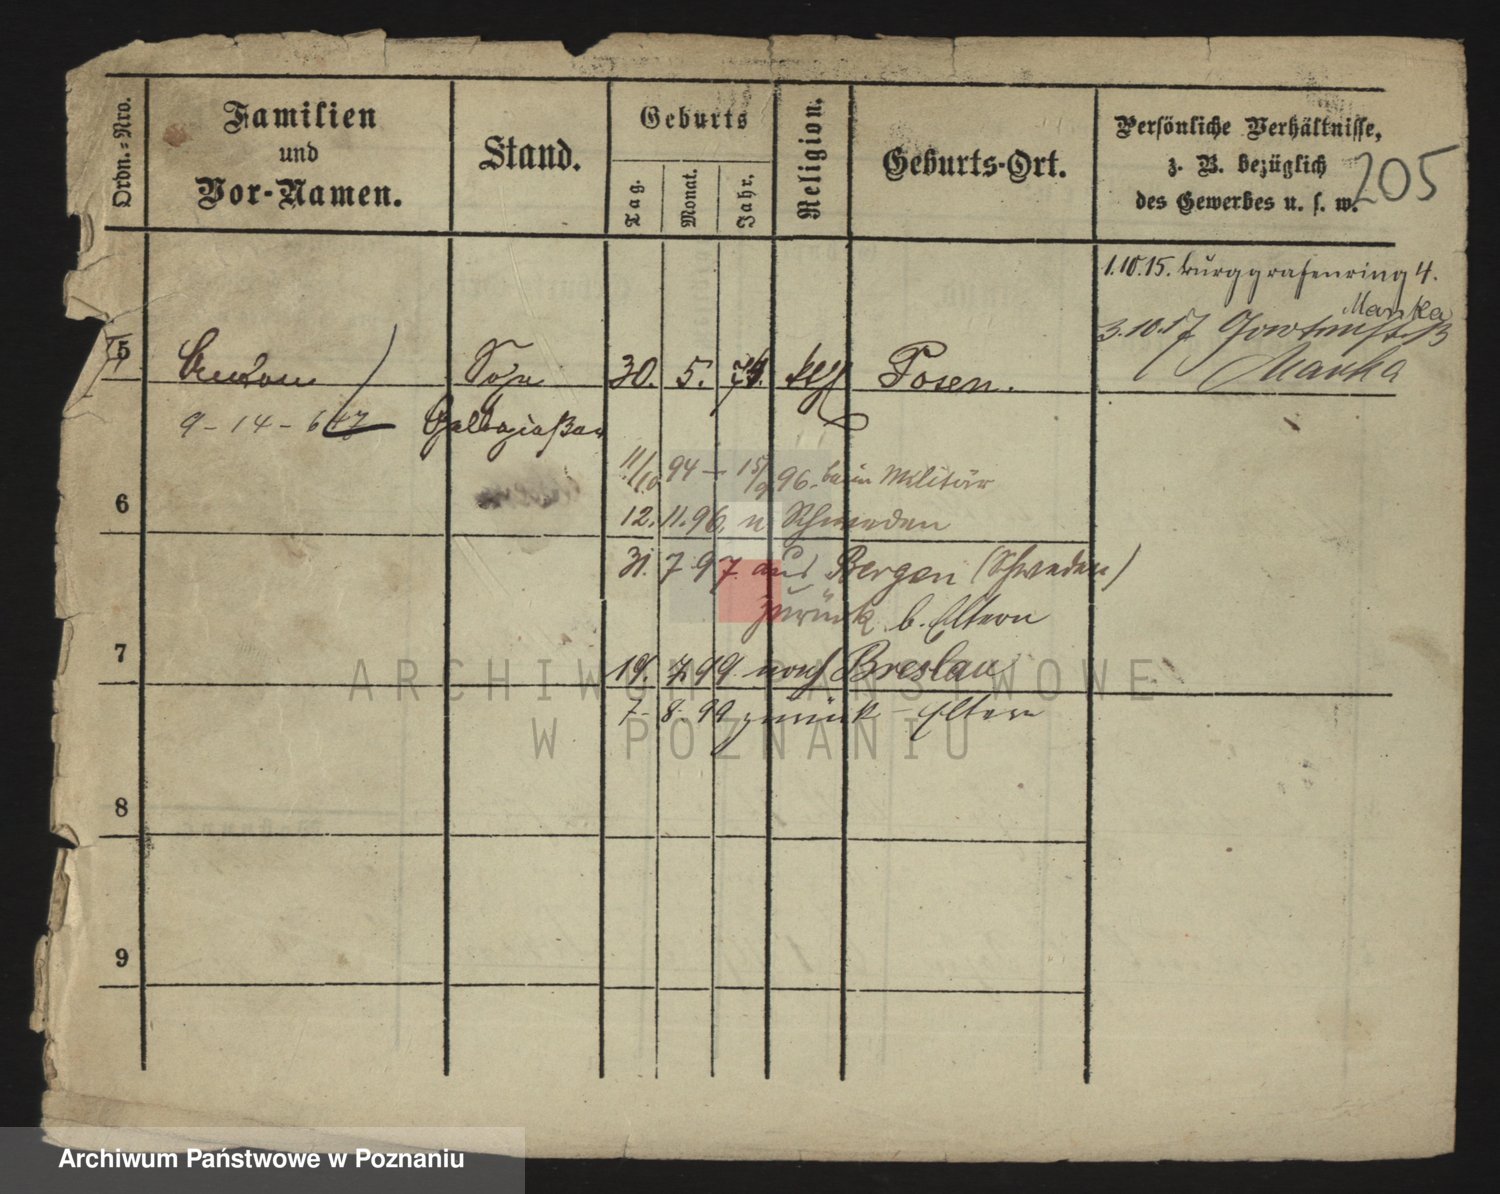 Ordn.-Nro.
Familien
und
Vor-Namen.
Stand.
Geburts
Tag.
Monat.
Jahr.
Religion.
Geburts-Ort.
Persönliche Verhältnisse,
z. B. bezüglich
des Gewerbes u. s. w.
205
1.10.15. Burggrafenring 4.
Manka
3.10.17
Manka
5
Sohn
30. 5. 74. kth Posen.
9-14-6
6
11/10 94 - 15/9 96. beim Militär
12. 11. 96. n Schweden
31. 7 97. aus Bergen (Schweden)
zurück b. Eltern
7
19. 7. 99. nach Breslau
7. 8. 99 zurück - Eltern
8
9
ARCHIWUM PAŃSTWOWE
W POZNANIU
Archiwum Państwowe w Poznaniu